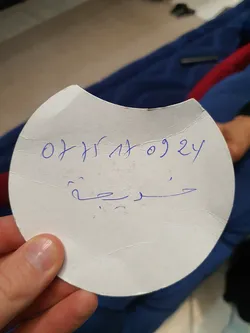 07 75 17 09 24
خديجة